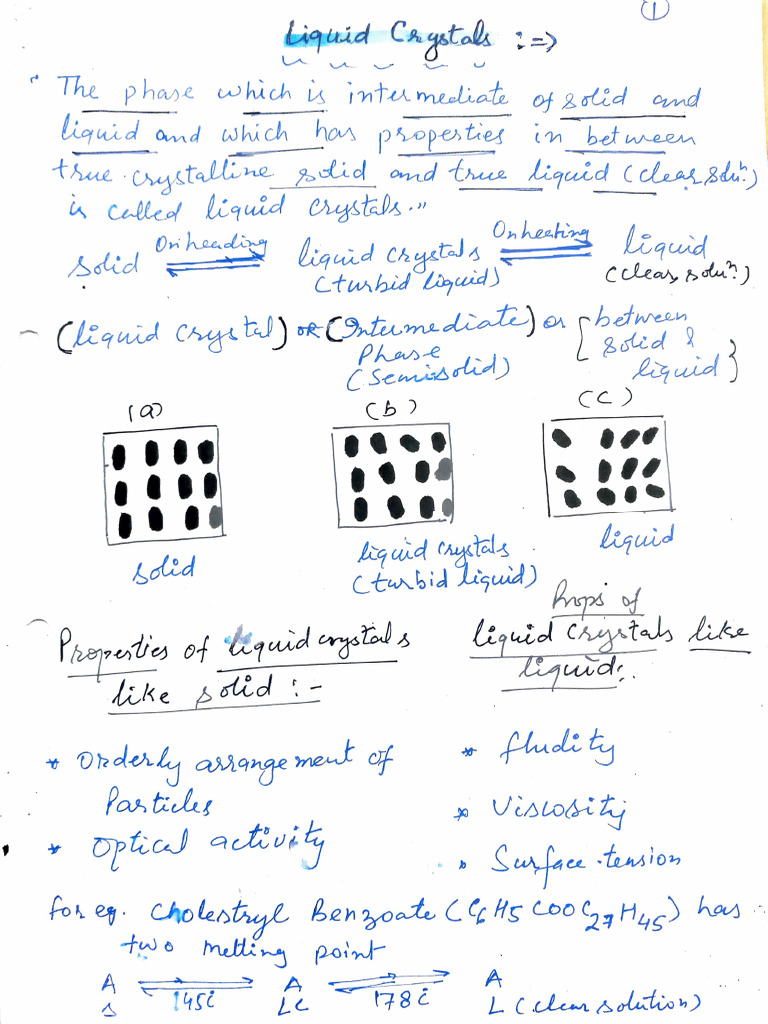 1
Liquid Crystals :=>
" The phase which is intermediate of solid and
liquid and which has properties in between
true crystalline solid and true liquid (clear soluⁿ.)
is called liquid crystals."
solid On heading liquid crystals On heating liquid
(turbid liquid) (clear soluⁿ.)
(liquid crystal) or (Intermediate) or [between
Phase solid &
(Semisolid) liquid}
(a) (b) (c)
solid liquid crystals liquid
(turbid liquid)
Properties of liquid crystals
like solid :-
Props of
liquid crystals like
liquid:.
* Orderly arrangement of
Particles
* Optical activity
* fludity
* Viscosity
* Surface tension
for eg. Cholestryl Benzoate (C6H5COOC27H45) has
two melting point
A 145c A 178c A
S LC L (clear solution)